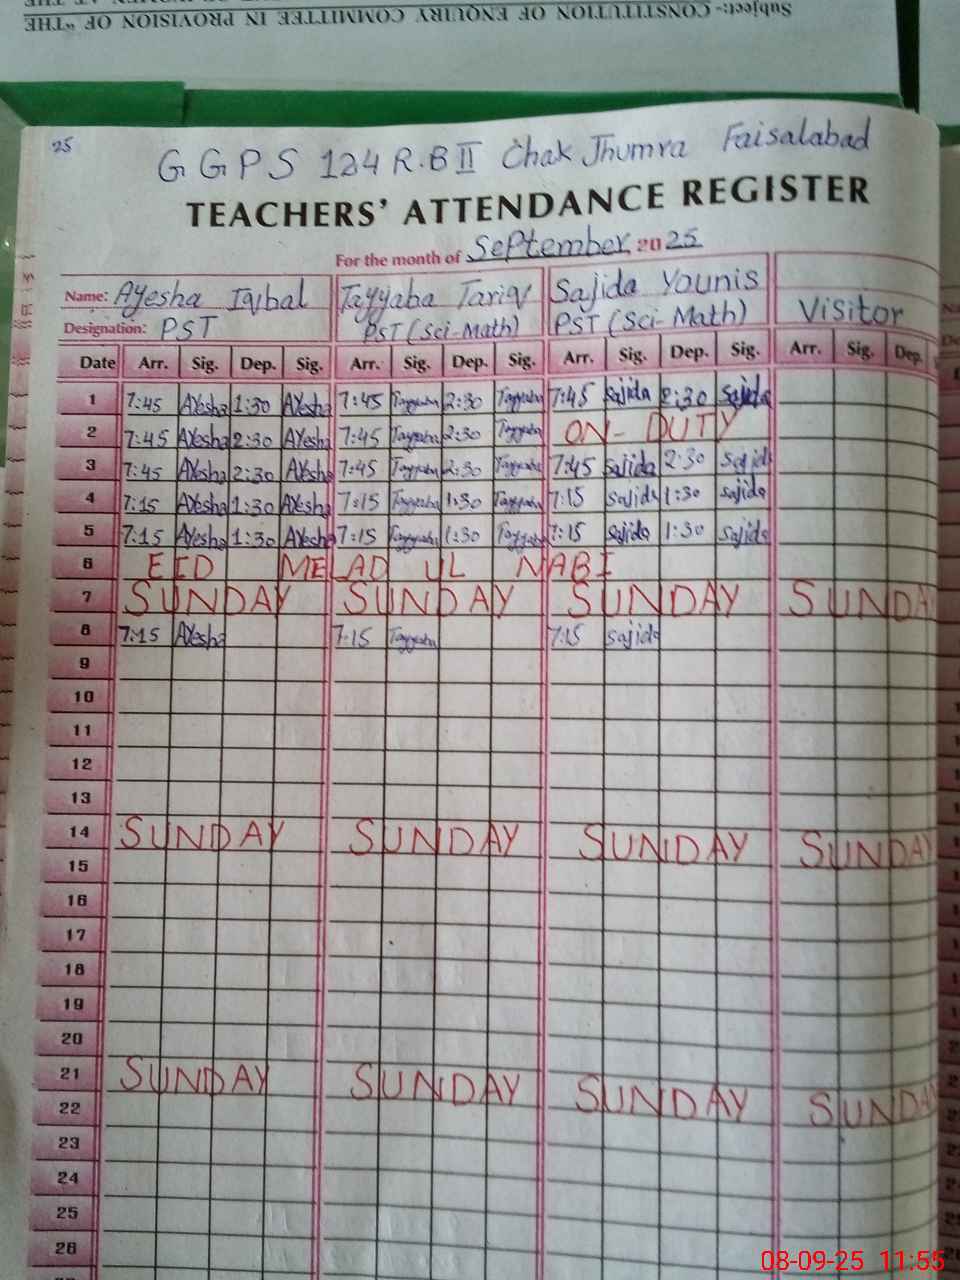 Subject:- CONSTITUTION OF ENQUIRY COMMITTEE IN PROVISION OF "THE
25
GGPS 124 R.B II Chak Jhumra Faisalabad
TEACHERS' ATTENDANCE REGISTER
For the month of September 2025
Name: Ayesha Iqbal Tayyaba Tariq Sajida Younis
Designation: PST PST (Sci-Math) PST (Sci-Math) Visitor
Date Arr. Sig. Dep. Sig. Arr. Sig. Dep. Sig. Arr. Sig. Dep. Sig. Arr. Sig. Dep.
1 7:45 Ayesha 1:30 Ayesha 7:45 Tayyaba 2:30 Tayyaba 7:45 Sajida 2:30 Sajida
2 7:45 Ayesha 2:30 Ayesha 7:45 Tayyaba 2:30 Tayyaba ON-DUTY
3 7:45 Ayesha 2:30 Ayesha 7:45 Tayyaba 2:30 Tayyaba 7:45 Sajida 2:30 Sajida
4 7:15 Ayesha 1:30 Ayesha 7:15 Tayyaba 1:30 Tayyaba 7:15 Sajida 1:30 Sajida
5 7:15 Ayesha 1:30 Ayesha 7:15 Tayyaba 1:30 Tayyaba 7:15 Sajida 1:30 Sajida
6 EID MELAD UL NABI
7 SUNDAY SUNDAY SUNDAY SUNDAY
8 7:15 Ayesha 7:15 Tayyaba 7:15 Sajida
9
10
11
12
13
14 SUNDAY SUNDAY SUNDAY SUNDAY
15
16
17
18
19
20
21 SUNDAY SUNDAY SUNDAY SUNDAY
22
23
24
25
26
08-09-25 11:55